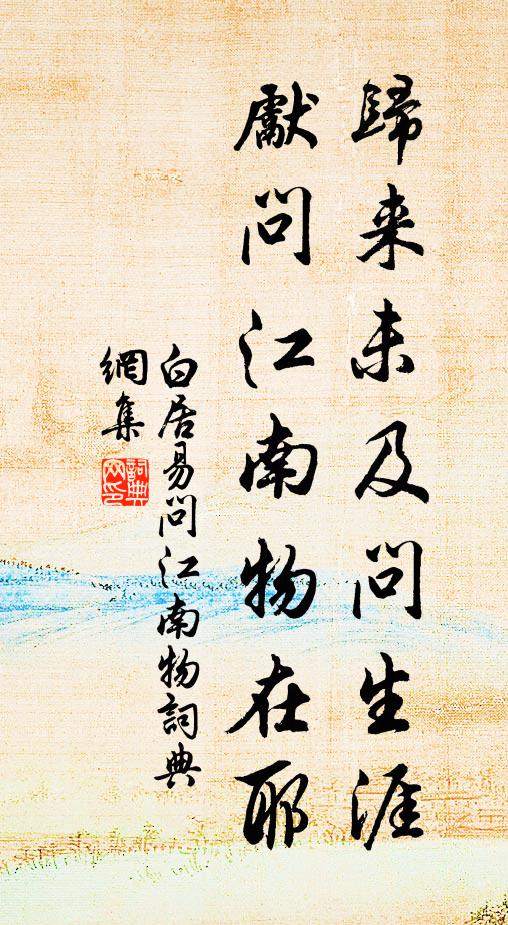 歸来未及問生涯
獻問江南物在耶
白居易問江南物詞典
網集
詞典網印